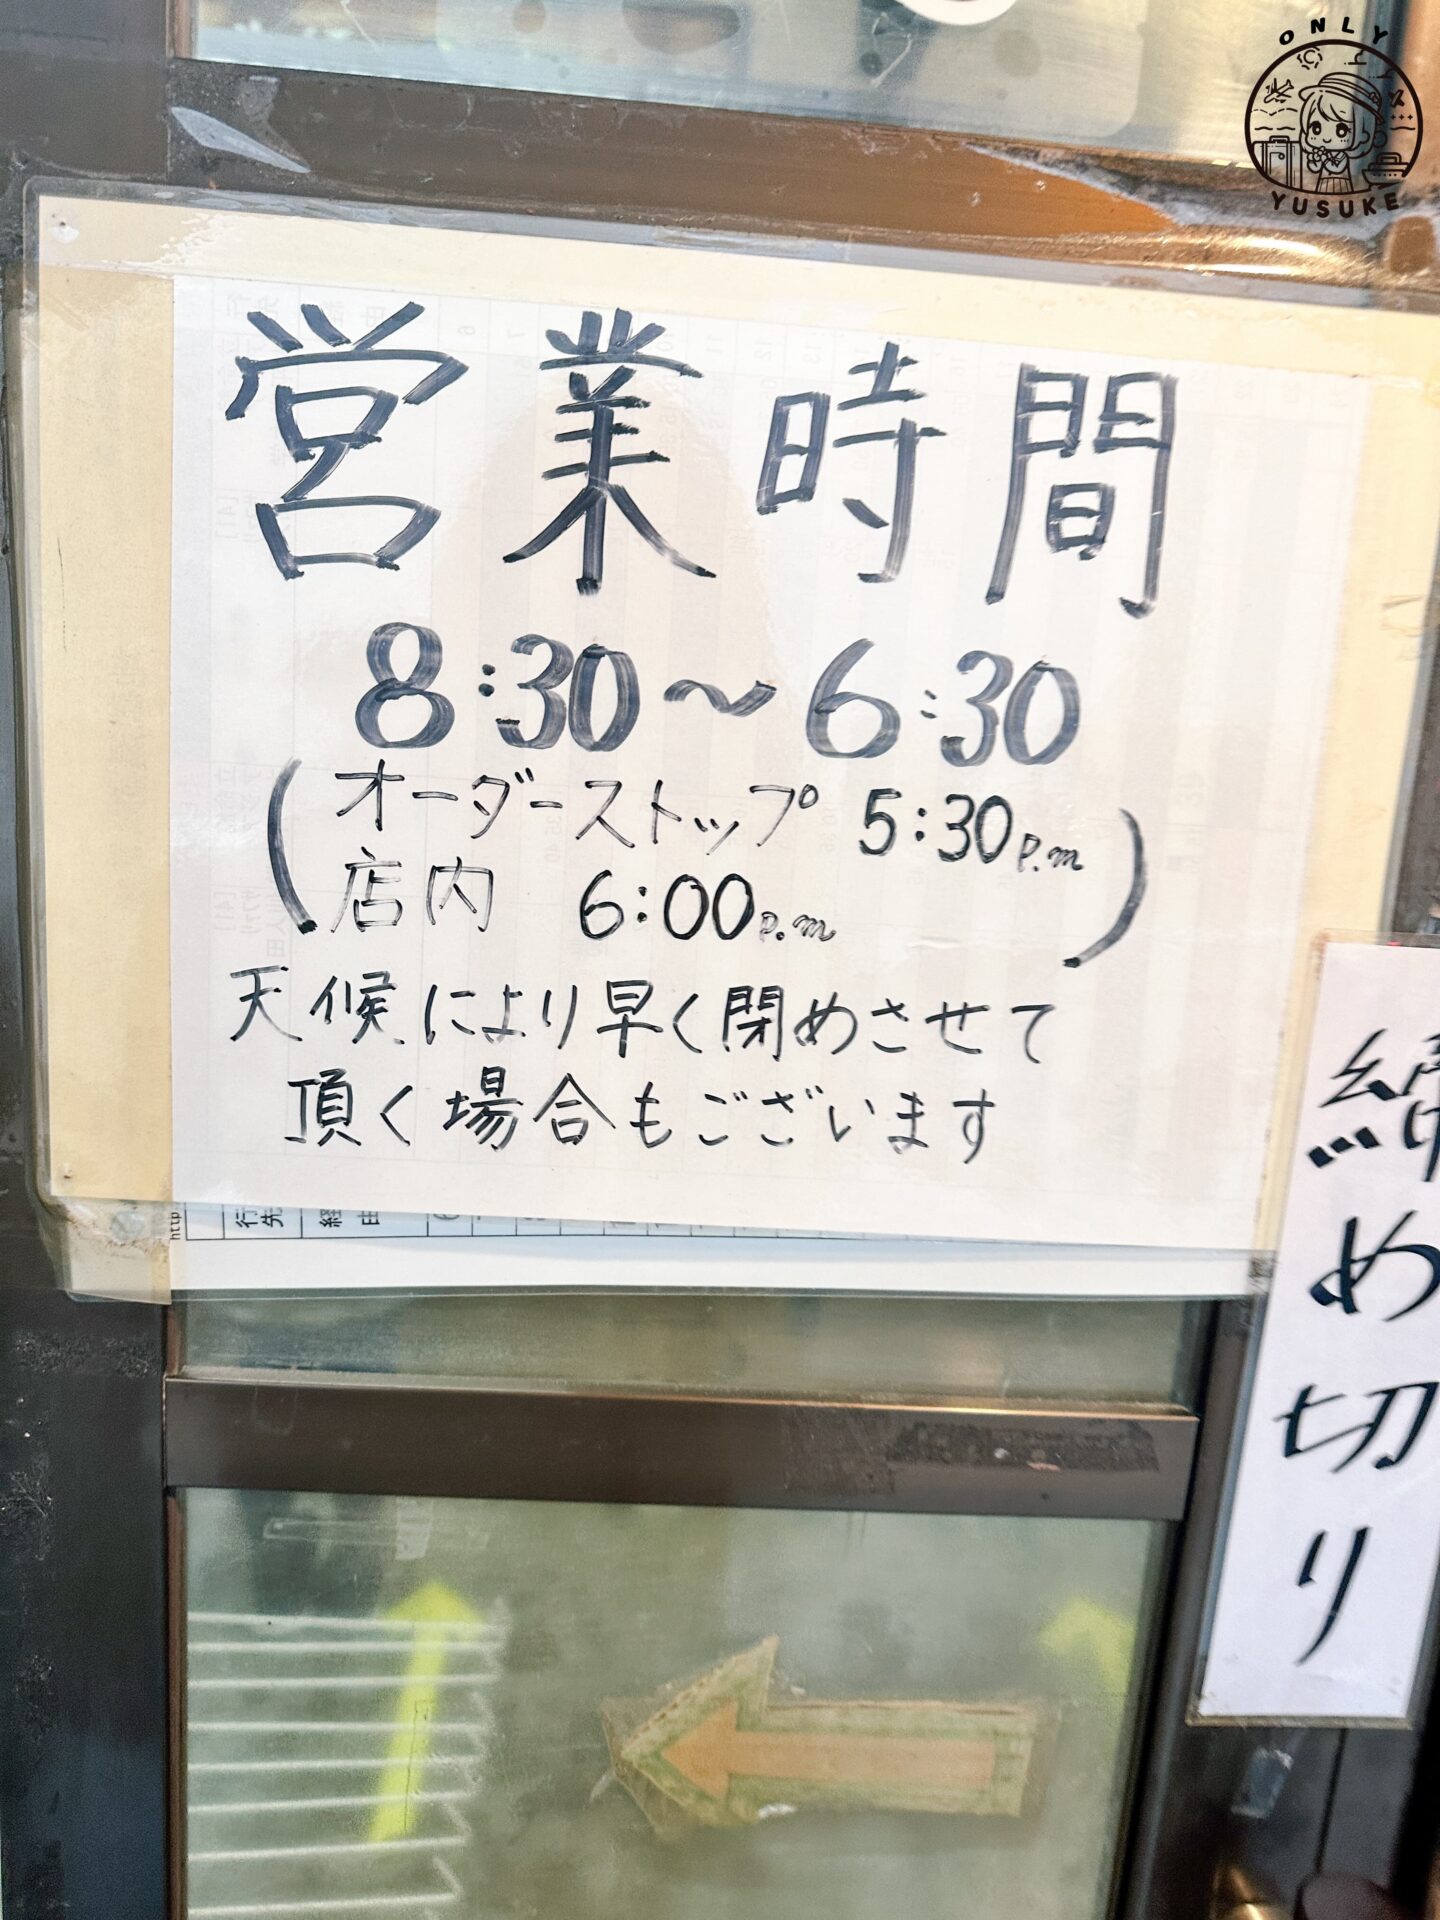 ONLY
YUSUKE
営業時間
8:30〜6:30
(オーダーストップ 5:30 p.m
店内 6:00 p.m)
天候により早く閉めさせて
頂く場合もございます
行先
経由
http
締め切り